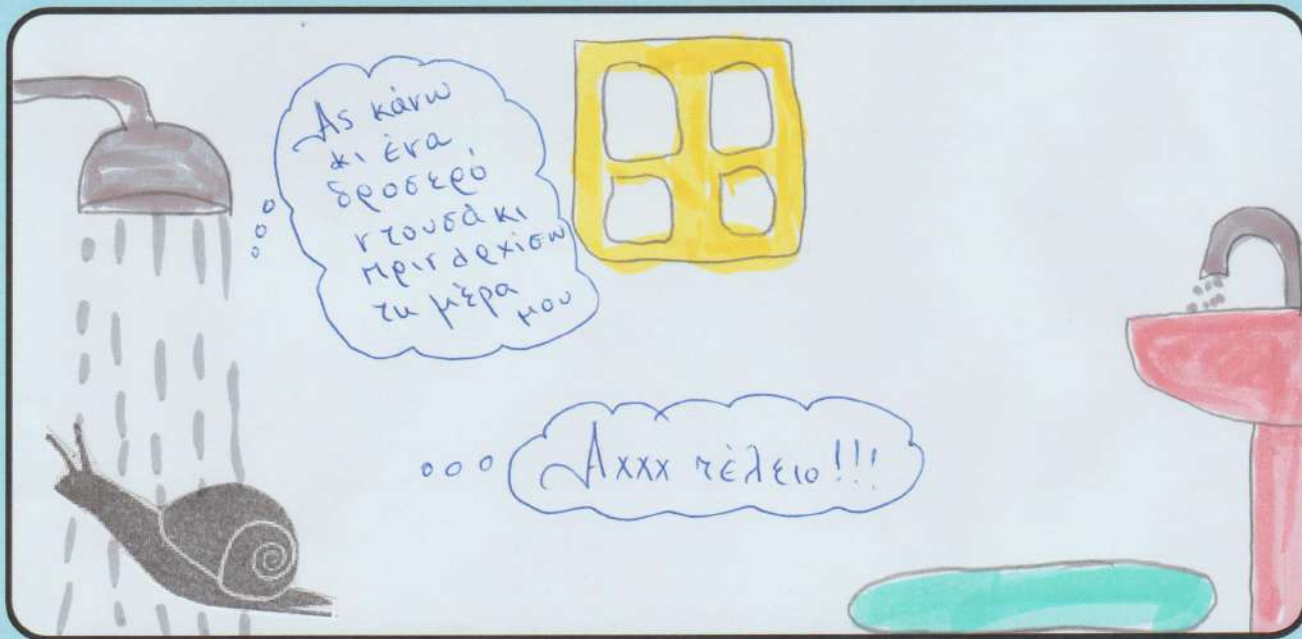 Ας κάνω
κι ένα
δροσερό
ντουσάκι
πριν αρχίσω
τη μέρα
μου
Αχχχ τέλειο!!!